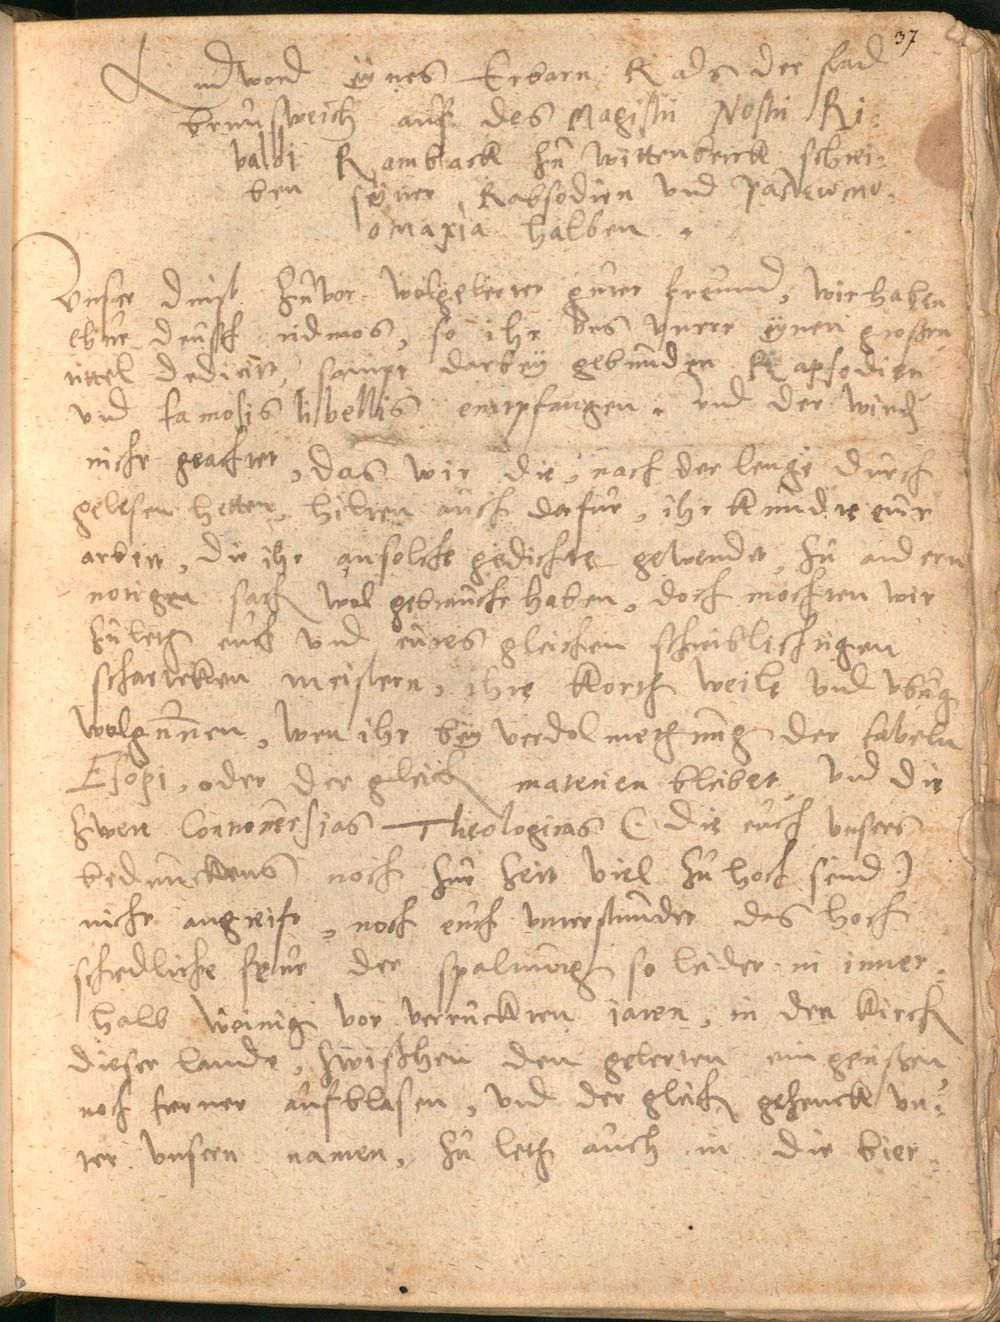 37
Andword eÿnes Erbarn Rads der stad
Braunsweich auff des Magistri Nostri Ri-
valdi Ramback zu Wittenberck schrei-
ben seiner Rabsodien vnd
omaxia halben.
Vnser dinst zuvor wolgelerter guter freund, wir haben
deusch so ihr vns vnter eÿnen grossen
tittel dedicirt, sampt darbeÿ gebunden Rapsodien
vnd famosis libellis entpfangen. vnd der wird
nicht geachtet, das wir die, nach der lenge durch
gelesen hetten, hilten auch dafur, ihr kundte eur
arbeit, die ihr an solche gedichte gewendet, zu andern
notigen sach wol gebraucht haben, doch mochten wir
zuletz euch vnd eures gleichen schreiblichtigen
meistern, ihre kortz weile vnd vbung
wolgunnen, wen ihr beÿ verdolmetzung der fabeln
Esopi, oder der gleich materien bleibet, vnd die
zwar Controuersias Theologicas (die euch vnsers
beduncktens noch zur zeit viel zu hoch seind)
nicht angreift, noch euch vnterstundet das hoch
schedliche feur der spaltung so leider in inner-
halb weinig vor verruckten iaren, in der kirch
dieser lande, zwischen den gelerten eingerissen,
noch ferner auffblasen, vnd der gleich gezenck vn-
ter vnsern namen, zu letz auch in die bier-